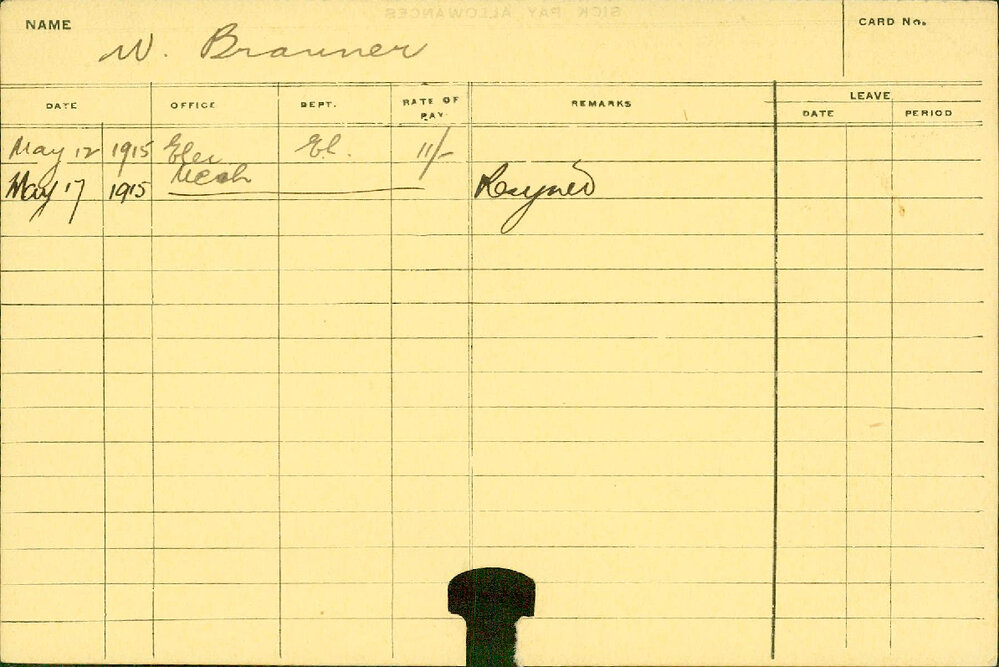 SICK PAY ALLOWANCES
NAME
W. Brauner
CARD No.
DATE OFFICE DEPT. RATE OF PAY REMARKS LEAVE
DATE PERIOD
May 12 1915 Elec El. 11/-
Mech
May 17 1915 Resigned